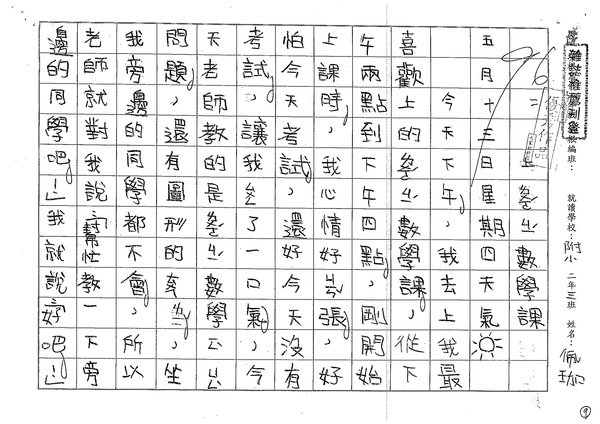 雜誌推薦刊登
就讀學校：附小 二年三班 姓名：佩珈
96
數學課
五月十三日星期四天氣
今天下午，我去上我最
喜歡上的數學課，從下
午兩點到下午四點，剛開始
上課時，我心情好張，好
怕今天考試，還好今天沒有
考試，讓我了一口氣，今
天老師教的是數學，
問題，還有圖形的，坐
我旁邊的同學都不會，所以
老師就對我說：「幫忙教一下旁
邊的同學吧！」我就說：「好吧！」
9